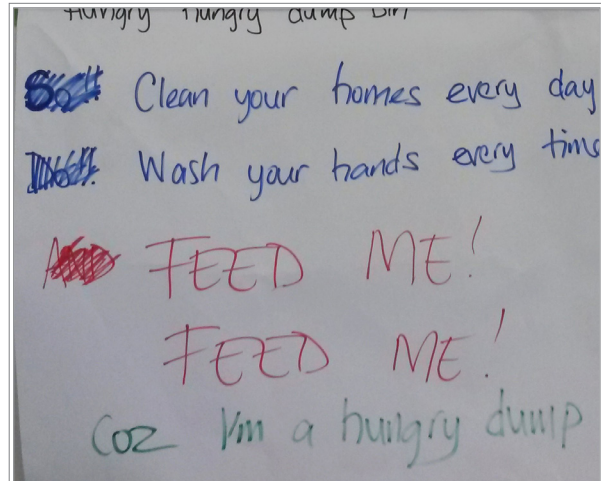 Hungry Hungry dump bin
Clean your homes every day
Wash your hands every time
FEED ME!
FEED ME!
Coz I'm a hungry dump